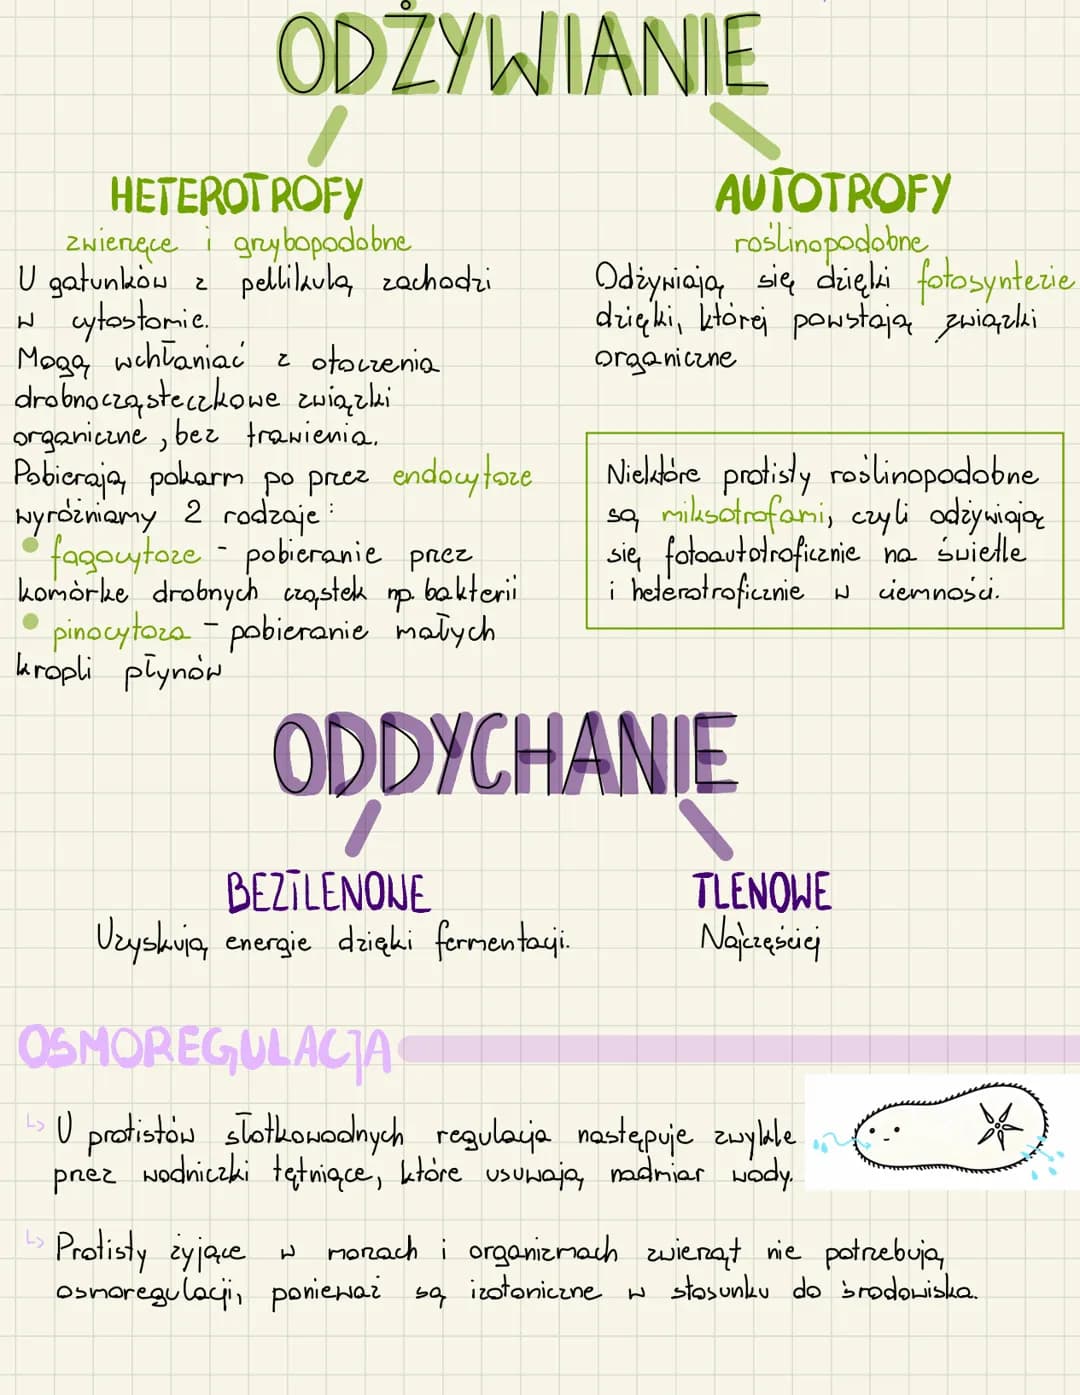 ODŻYWIANIE
HETEROTROFY
zwierzęce i grzybopodobne
U gatunków z pellikulą zachodzi
w cytostomie.
Mogą wchłaniać z otoczenia
drobnocząsteczkowe związki
organiczne, bez trawienia.
Pobierają pokarm po przez endocytoze
wyróżniamy 2 rodzaje:
• fagocytoze - pobieranie przez
komórke drobnych cząstek np. bakterii
• pinocytoza - pobieranie małych
kropli płynów
AUTOTROFY
roślinopodobne
Odżywiają się dzięki fotosyntezie
dzięki, której powstają związki
organiczne
Niektóre protisty roślinopodobne
są miksotrofami, czyli odżywiając
się fotoautotroficznie na świetle
i heterotroficznie w ciemności.
ODDYCHANIE
BEZTLENOWE
Uzyskują energie dzięki fermentacji.
TLENOWE
Najczęściej
OSMOREGULACJA
↳ U protistów słotkowodnych regulacja następuje zwykle
przez wodniczki tętniące, które usuwają nadmiar wody.
↳ Protisty żyjące w morzach i organizmach zwierząt nie potrzebują
osmoregulacji, ponieważ są izotoniczne w stosunku do środowiska.